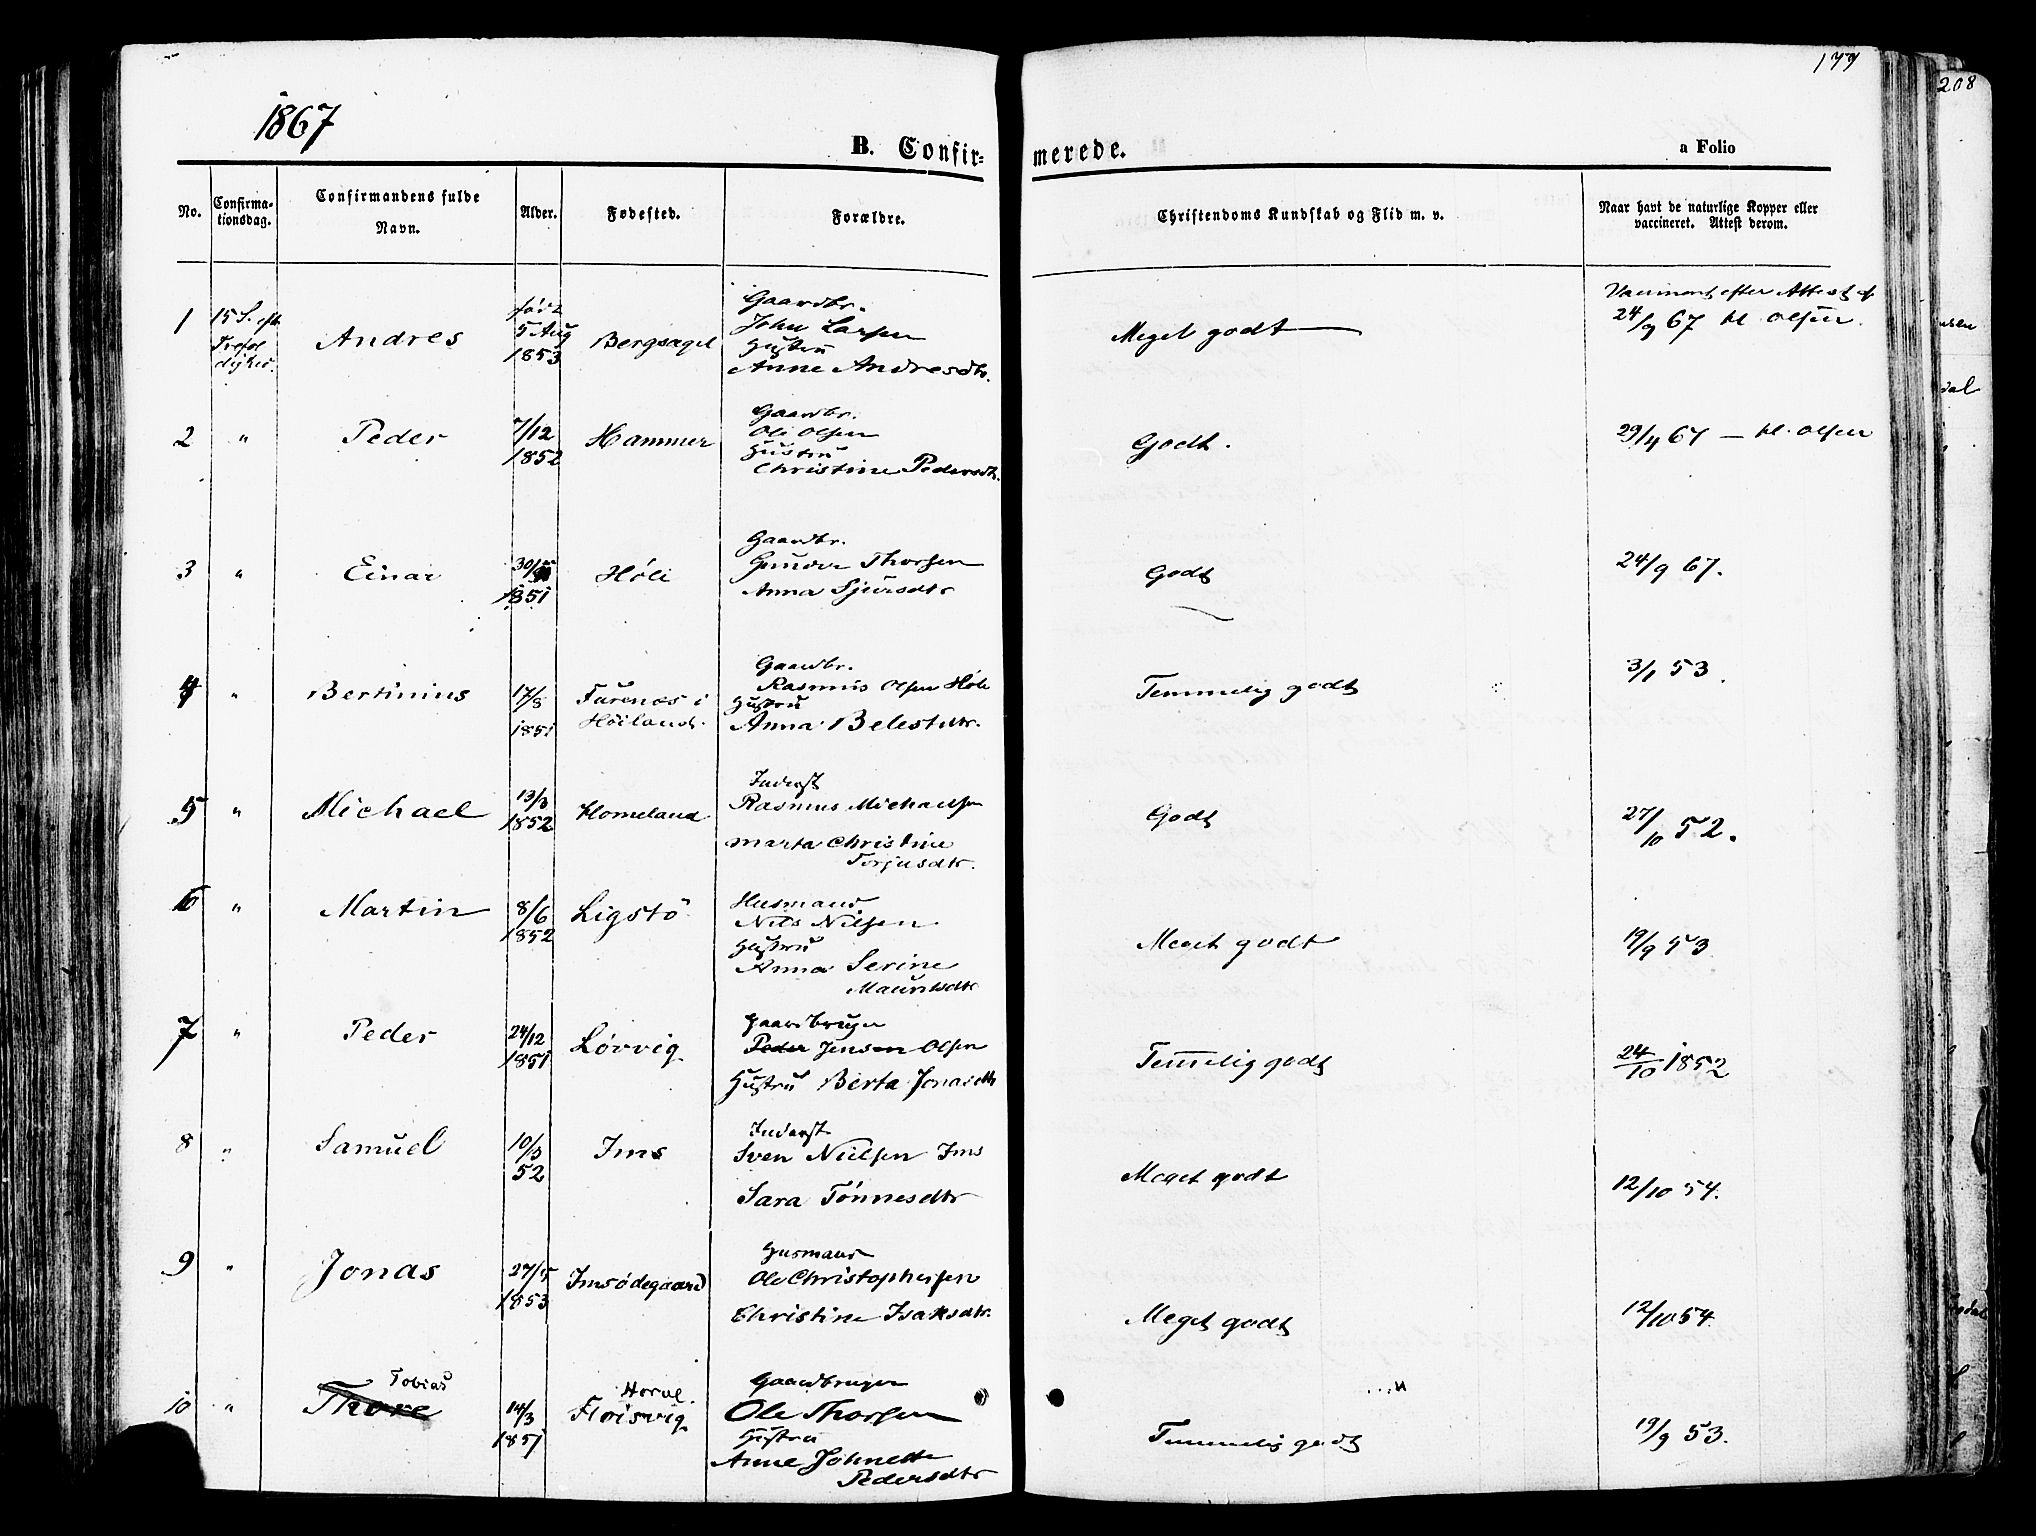 177
208
1867
B. Confir-
merede.
a Folio
No.
Confirma-
tionsdag.
Confirmandens fulde
Navn.
Alder.
Fødested.
Forældre.
Christendoms Kundskab og Flid m. v.
Naar havt de naturlige Kopper eller
vaccineret. Attest derom.
1 15 S. eft Trefoldighed. Andres født 5 Aug 1853 Bergsagel
Gaardbr.
John Larsen
Hustru
Anne Andresdtr.
Meget godt
24/9 67 Kl. Olsen.
2 " Peder 7/12 1852 Hammer
Gaardbr.
Ole Olsen
Hustru
Christine Pedersdtr.
Godt.
29/4 67 — Kl. Olsen
3 " Einar 1851 Høle
Gaardbr.
Gunder Thorsen
Anna Sjursdtr
Godt
24/9 67.
4 " Bertinius 17/8 1851 Furenæs i Høiland.
Gaardbr.
Rasmus Olsen Høle
Hustru
Anna Belestdtr.
Temmelig godt
3/1 53.
5 " Michael 13/3 1852 Homeland
Inderst
Rasmus Michaelsen
Marta Christine
Torjusdtr.
Godt
27/10 52.
6 " Martin 8/6 1852 Ligstö
Husmand
Nils Nilsen
Hustru
Anna Serine
Mauritsdtr
Meget godt
19/9 53
7 " Peder 24/12 1851 Løvvig
Gaardbruger
Peder Jensen Olsen
Hustru Berta Jonasdtr
Temmelig godt
24/10 1852
8 " Samuel 10/3 52 Ims
Inderst
Sven Nielsen Ims
Sara Tönnesdtr
Meget godt
12/10 54.
9 " Jonas 27/5 1853 Imsödegaard
Husmand
Ole Christophersen
Christine Isaksdtr.
Meget godt
12/10 54.
10 " Thore Tobias 14/3 1851 Fløisvig
Gaardbruger
Ole Thorsen
Hustru
Anne Johnette
Pedersdtr
Temmelig godt
19/9 53.